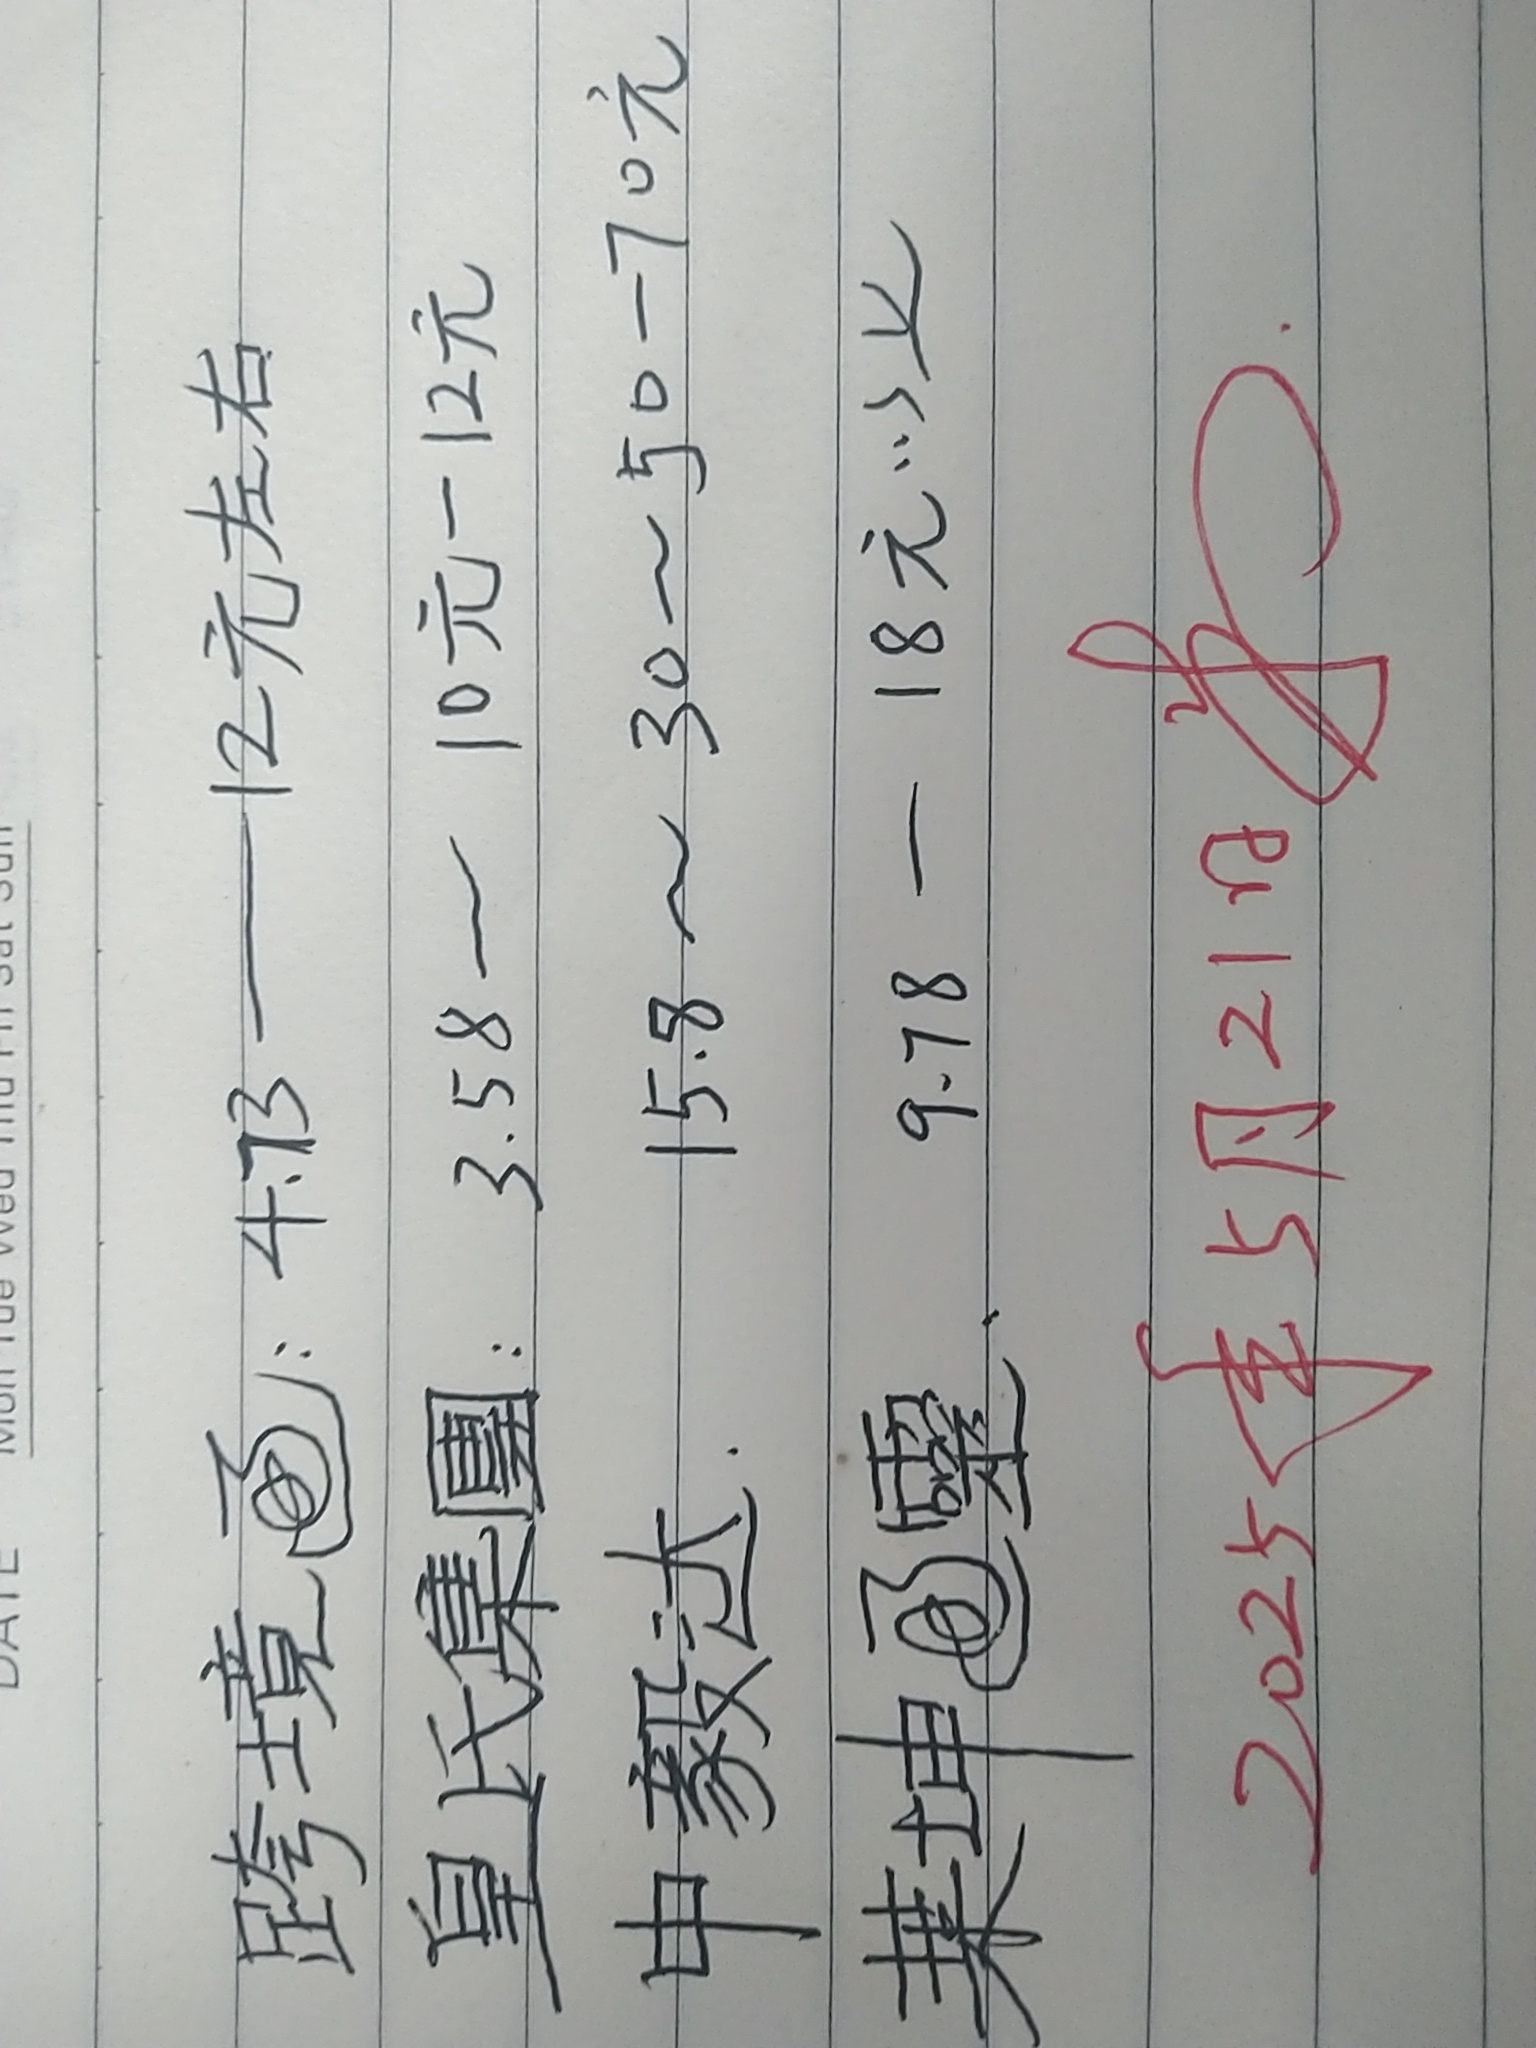 DATE Mon Tue Wed Thu Fri Sat Sun
跨境通: 4.73——12元左右
皇氏集團: 3.58—10元一12元
中毅达. 15.8~30~50一70元
莱坤通靈. 9.78—18元以上
2025年5月21日